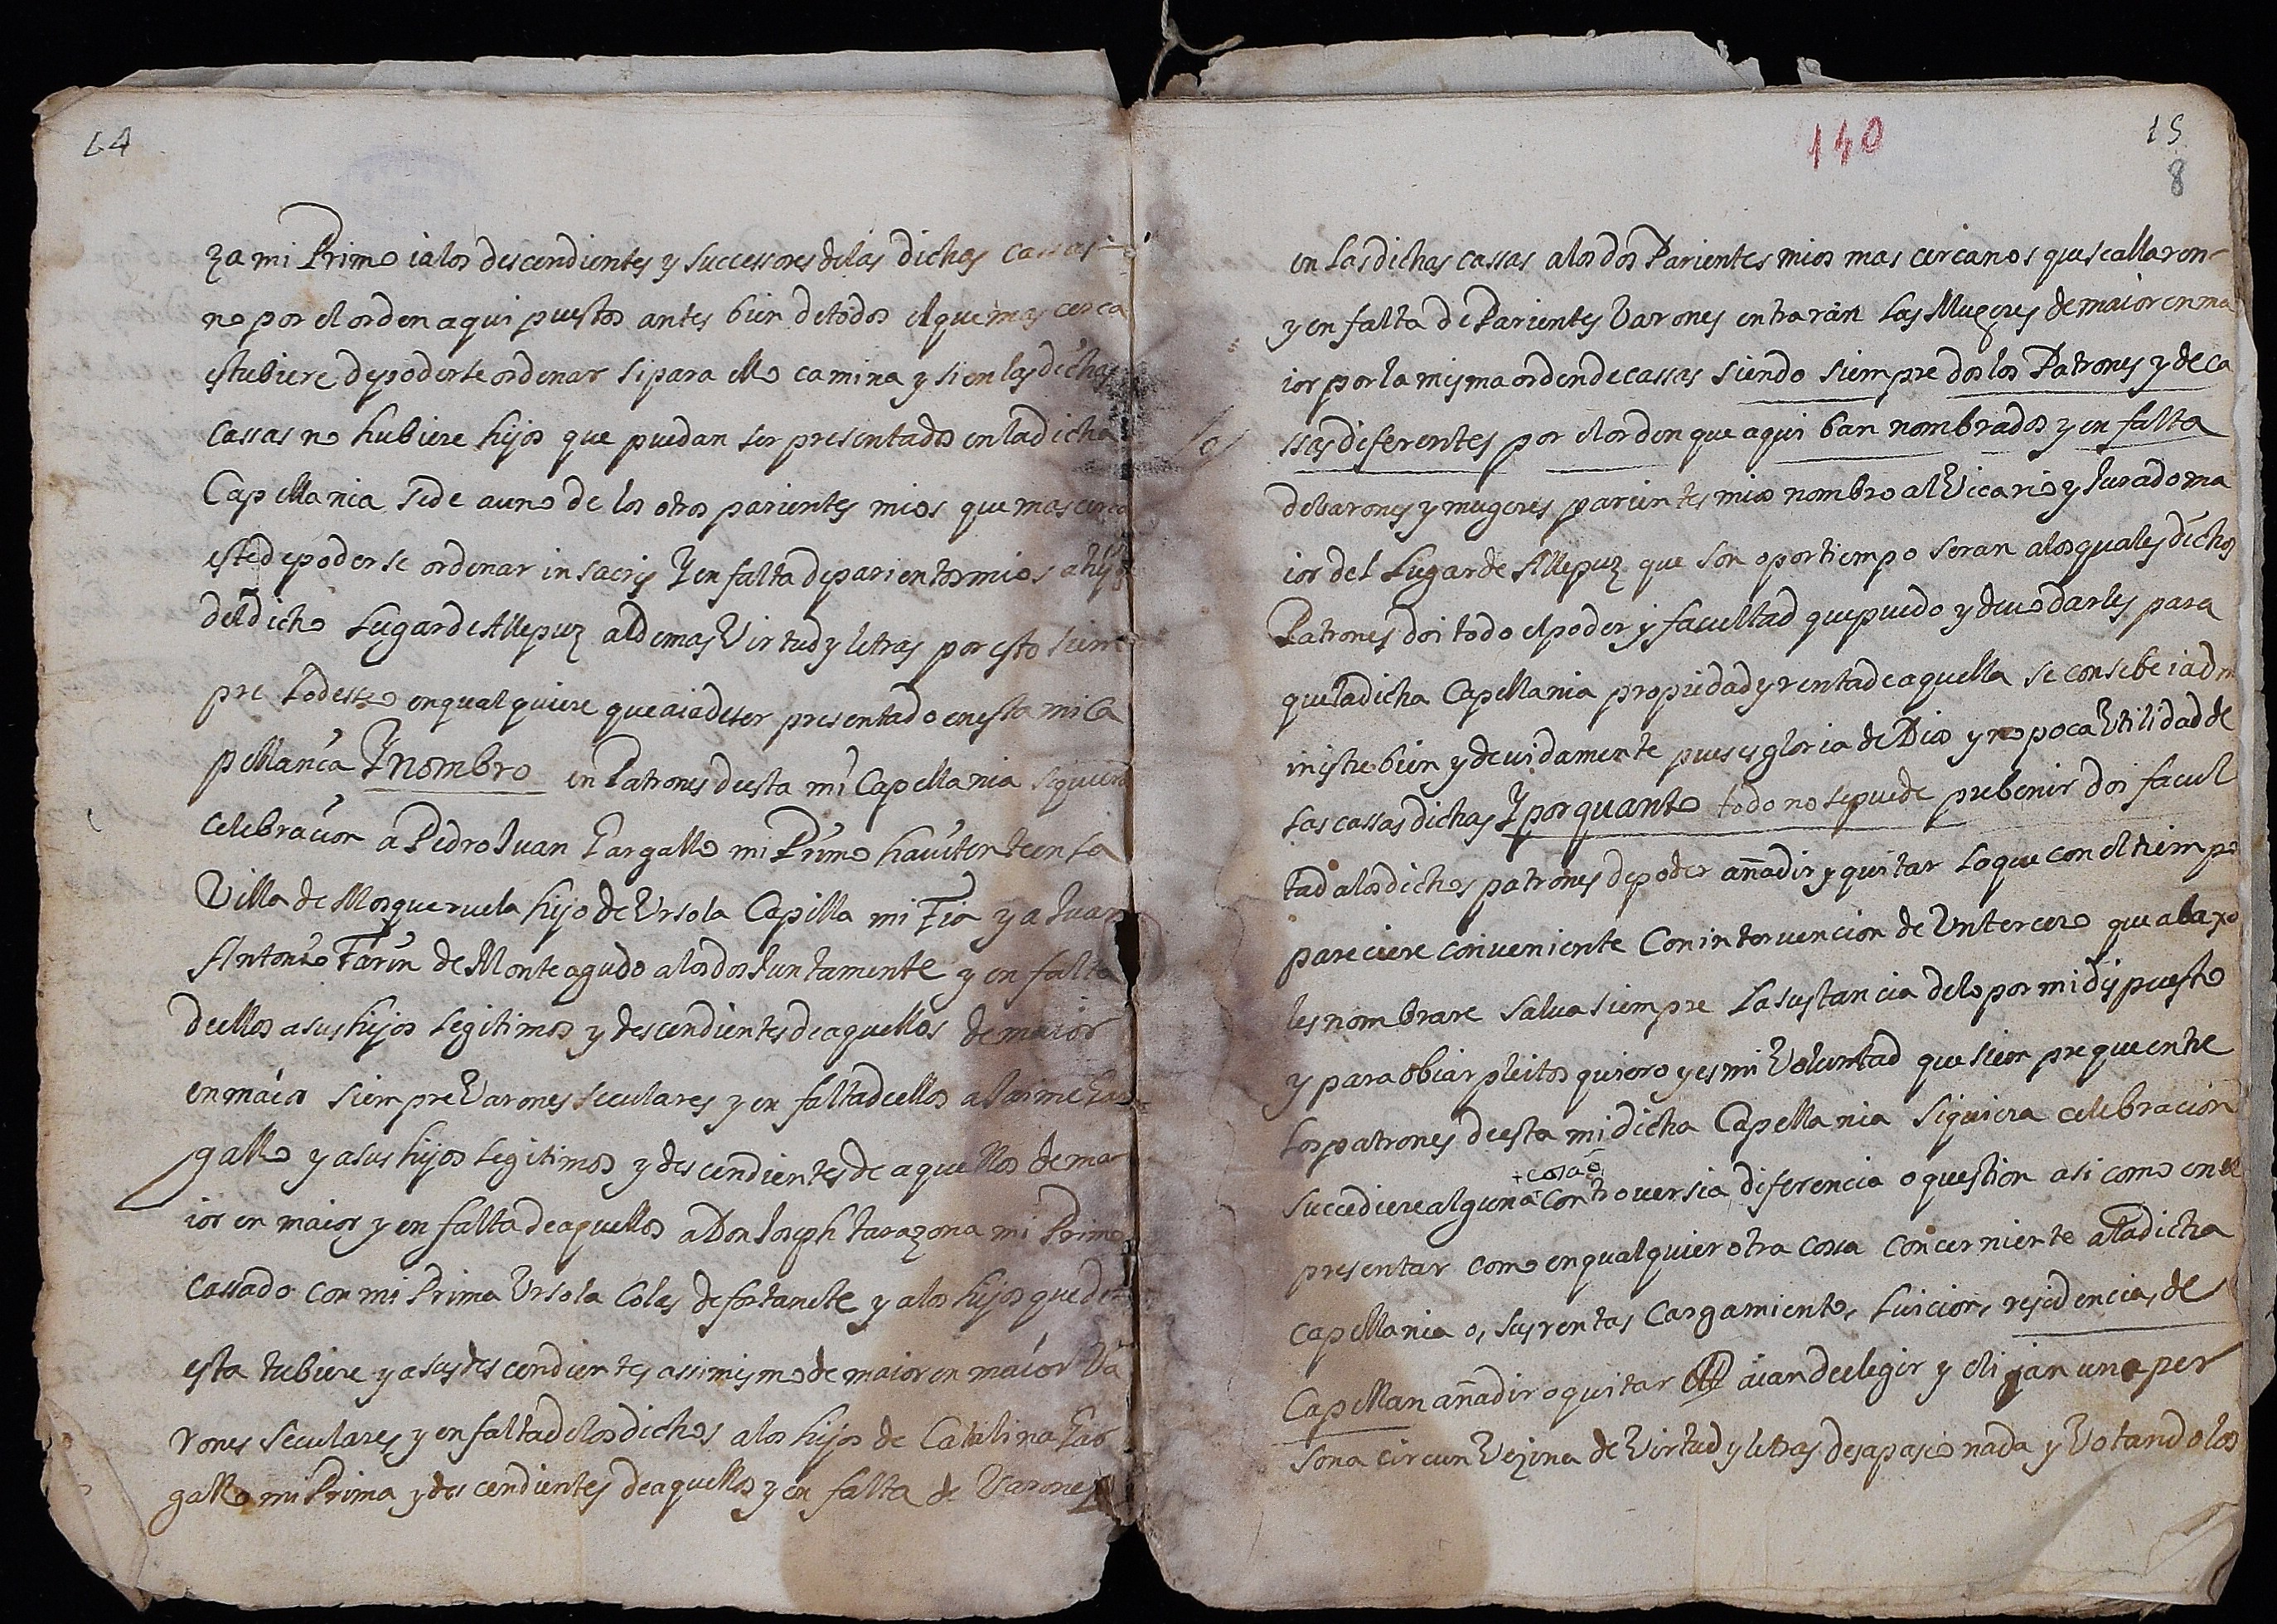 14
za mi Primo i a los descendientes y successores de las dichas cassas
no por el orden aqui puestos antes bien de todos el que mas cerca
estubiere de poderse ordenar si para ello camina y si en las dichas
cassas no hubiere hijos que puedan ser presentados en la dicha
Capellania se de a uno de los otros parientes mios que mas cerca
este de poderse ordenar in sacris Y en falta de parientes mios a hijo
del dicho Lugar de Allepuz al de mas Virtud y letras por esto siem
pre lo desseo en qualquiere que aia de ser presentado en esta mi Ca
pellania Y nombro en Patrones de esta mi Capellania siquiere
celebracion a Pedro Juan Gargallo mi Primo hauitante en la
Villa de Mosqueruela hijo de Ursola Capilla mi Tia y a Juan
Antonio Tarin de Monteagudo a los dos Juntamente y en falta
de ellos a sus hijos legitimos y descendientes de aquellos de maior
en maior siempre Varones seculares y en falta de ellos a Jaime Gar
gallo y a sus hijos legitimos y descendientes de aquellos de ma
ior en maior y en falta de aquellos a Don Joseph Tarazona mi Primo
cassado con mi Prima Ursola Colas de fortanete y a los hijos que de
esta tubiere y a sus descendientes assi mismo de maior en maior Va
rones seculares y en falta de los dichos a los hijos de Catalina Gar
gallo mi Prima y descendientes de aquellos y en falta de Varones
140
15
8
en las dichas cassas a los dos Parientes mios mas cercanos que se allaron
y en falta de Parientes Varones entraràn las Mugeres de maior en ma
ior por la misma orden de cassas siendo siempre dos los Patrones y de ca
ssas diferentes por el orden que aqui ban nombrados y en falta
de varones y mugeres parientes mios nombro al Vicario y Jurado ma
ior del Lugar de Allepuz que son o por tiempo seran a los quales dichos
Patrones doi todo el poder y facultad que puedo y deuo darles para
que la dicha Capellania propiedad y renta de aquella se consebe i adm
inistre bien y deuidamente pues es gloria de Dios y no poca Utilidad de
las cassas dichas Y por quanto todo no se puede prebenir doi facul
tad a los dichos patrones de poder añadir y quitar lo que con el tiempo
pareciere conveniente con interuencion de Un tercero que abaxo
les nombrare salua siempre la sustancia de lo por mi dispuesto
y para obiar pleitos quiero y es mi Voluntad que siempre que entre
los patrones de esta mi dicha Capellania siquiera celebracion
+ cosa o
succediere alguna + controuersia diferencia o question asi como en el
presentar como en qualquier otra cossa concerniente a la dicha
capellania o, sus rentas cargamiento, luicion, residencia, de
Capellan añadir o quitar aian de elegir y elijan una per
sona circunVezina de Virtud y letras desapasionada y Votando los